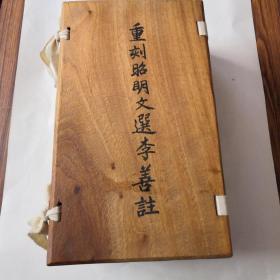 重刻昭明文選李善註